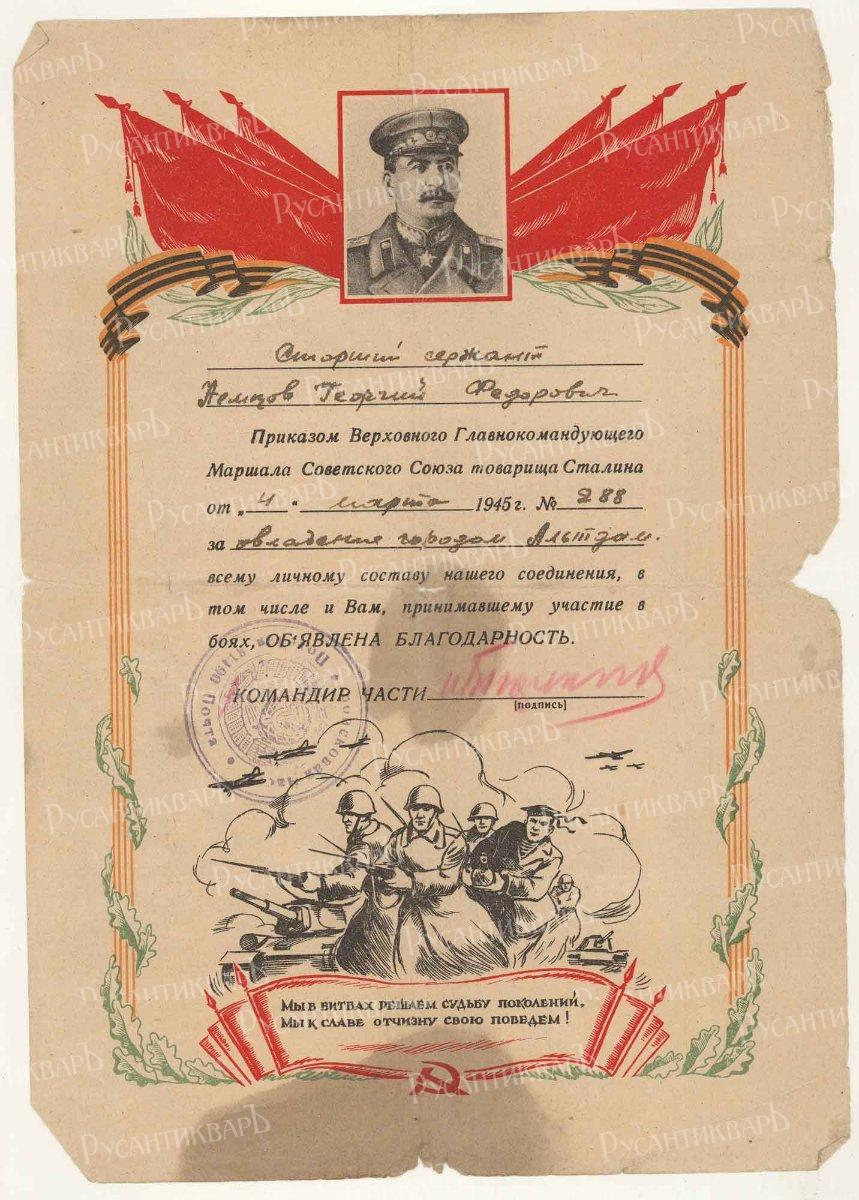 Старший сержант
Немцов Георгий Федорович
Приказом Верховного Главнокомандующего
Маршала Советского Союза товарища Сталина
от „4“ марта 1945 г. № 288
за овладение городом Альтдам.
всему личному составу нашего соединения, в
том числе и Вам, принимавшему участие в
боях, ОБ'ЯВЛЕНА БЛАГОДАРНОСТЬ.
КОМАНДИР ЧАСТИ
[подпись]
Полевая Почта
Войсковая
МЫ В БИТВАХ РЕШАЕМ СУДЬБУ ПОКОЛЕНИЙ,
МЫ К СЛАВЕ ОТЧИЗНУ СВОЮ ПОВЕДЕМ!
РУСАНТИКВАРЪ